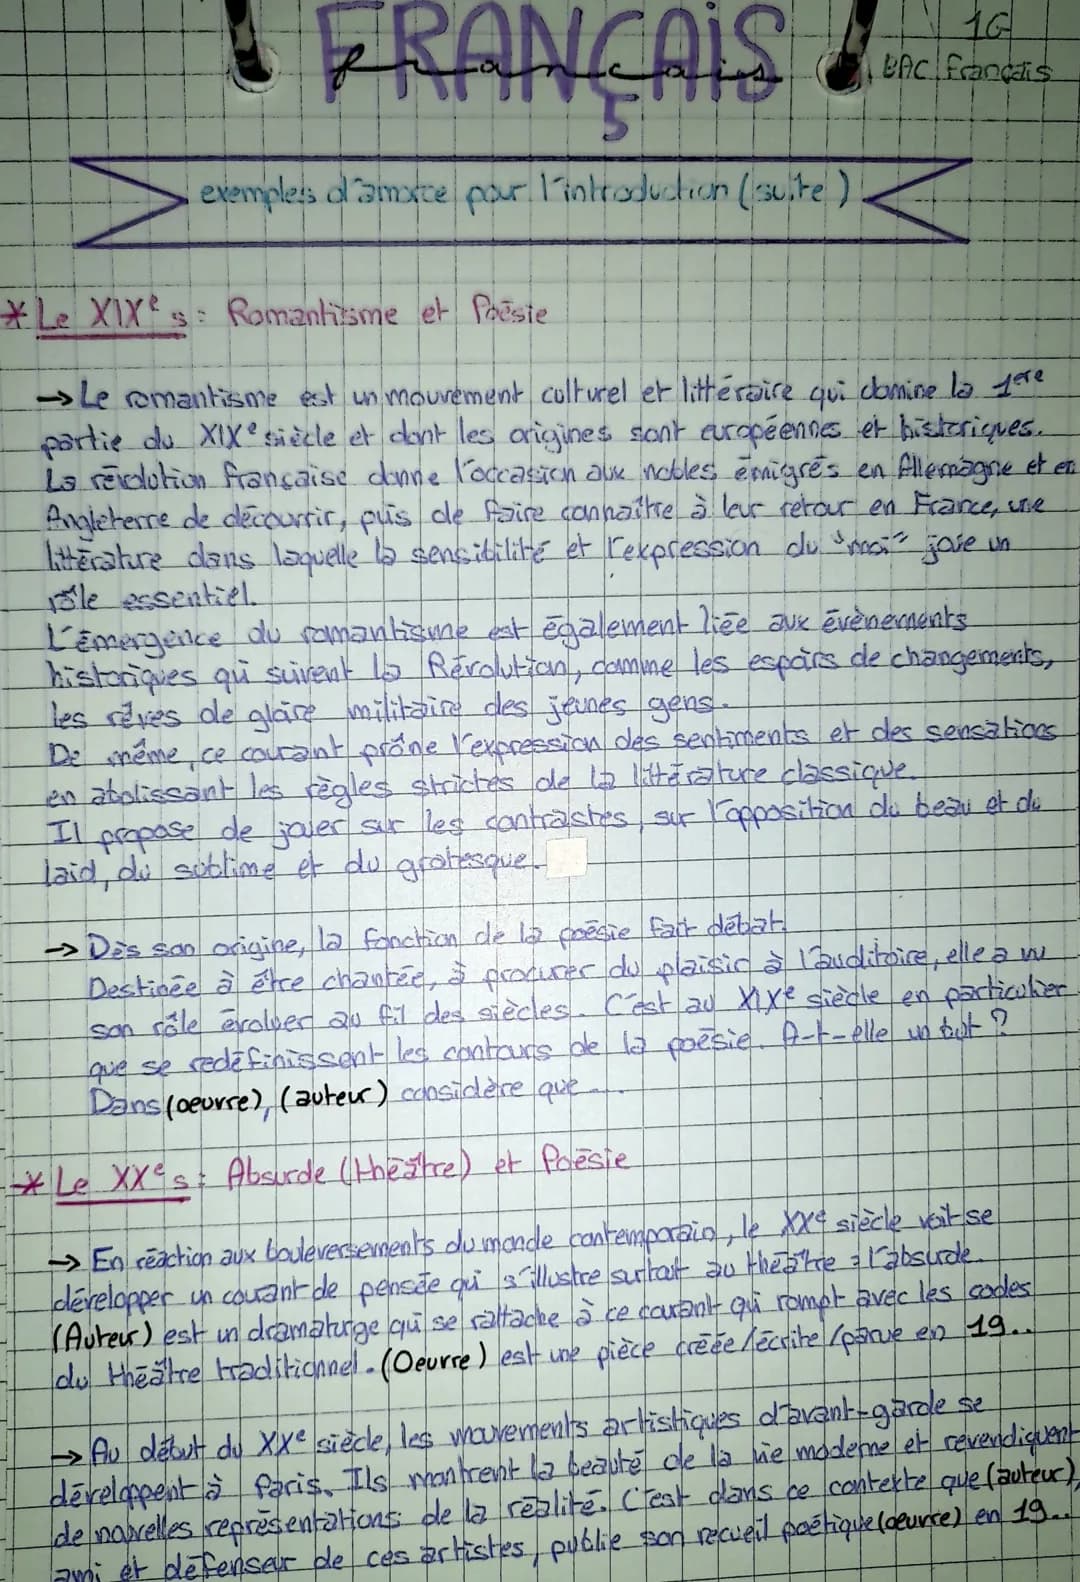 FRANÇAIS
français
1G
BAC Français
exemples d'amorce pour l'introduction (suite)
* Le XIXe s : Romantisme et Poésie
→ Le romantisme est un mouvement culturel et littéraire qui domine la 1ere
partie du XIXe siècle et dont les origines sont européennes et historiques.
La révolution française donne l'occasion aux nobles émigrés en Allemagne et en
Angleterre de découvrir, puis de faire connaître à leur retour en France, une
littérature dans laquelle la sensibilité et l'expression du "moi" joue un
rôle essentiel.
L'émergence du romantisme est également liée aux évènements
historiques qui suivent la Révolution, comme les espoirs de changements,
les rêves de gloire militaire des jeunes gens.
De même, ce courant prône l'expression des sentiments et des sensations
en abolissant les règles strictes de la littérature classique.
Il propose de jouer sur les contrastes, sur l'opposition du beau et du
laid, du sublime et du grotesque.
→ Dès son origine, la fonction de la poésie fait débat.
Destinée à être chantée, à procurer du plaisir à l'auditoire, elle a vu
son rôle évoluer au fil des siècles. C'est au XIXe siècle en particulier
que se redéfinissent les contours de la poésie. A-t-elle un but ?
Dans (oeuvre), (auteur) considère que ...
* Le XXe s : Absurde (théâtre) et Poésie
→ En réaction aux bouleversements du monde contemporain, le XXe siècle voit se
développer un courant de pensée qui s'illustre surtout au théâtre : l'absurde.
(Auteur) est un dramaturge qui se rattache à ce courant qui rompt avec les codes
du théâtre traditionnel. (Oeuvre) est une pièce créée/écrite/parue en 19..
→ Au début du XXe siècle, les mouvements artistiques d'avant-garde se
développent à Paris. Ils montrent la beauté de la vie moderne et revendiquent
de nouvelles représentations de la réalité. C'est dans ce contexte que (auteur),
ami et défenseur de ces artistes, publie son recueil poétique (oeuvre) en 19..